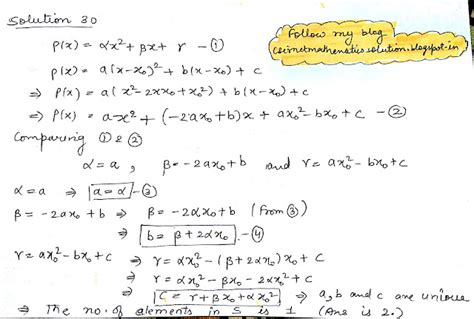 Solution 30
Follow my blog
csirnetmathematicssolution.blogspot.in
P(x) = αx² + βx + γ - ①
p(x) = a(x-x₀)² + b(x-x₀) + c
⇒ P(x) = a(x²-2xx₀+x₀²) + b(x-x₀) + c
⇒ P(x) = ax² + (-2ax₀+b)x + ax₀²-bx₀+c - ②
Comparing ① & ②
α = a , β = -2ax₀+b and γ = ax₀²-bx₀+c
α = a ⇒ a = α - ③
β = -2ax₀ + b ⇒ β = -2αx₀+b (From ③)
⇒ b = β + 2αx₀ - ④
γ = ax₀²-bx₀+c ⇒ γ = αx₀² - (β+2αx₀)x₀ + c
⇒ γ = αx₀² - βx₀ - 2αx₀² + c
⇒ c = γ + βx₀ + αx₀² ⇒ a, b and c are unique
⇒ The no. of elements in S is 1 (Ans is 2.)